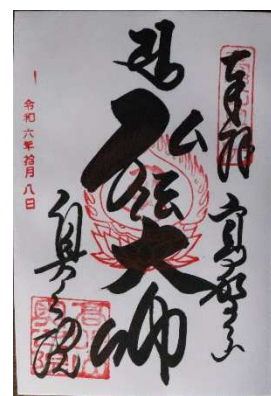 奉拝
高野山
弘法大師
奥之院
令和六年拾月八日